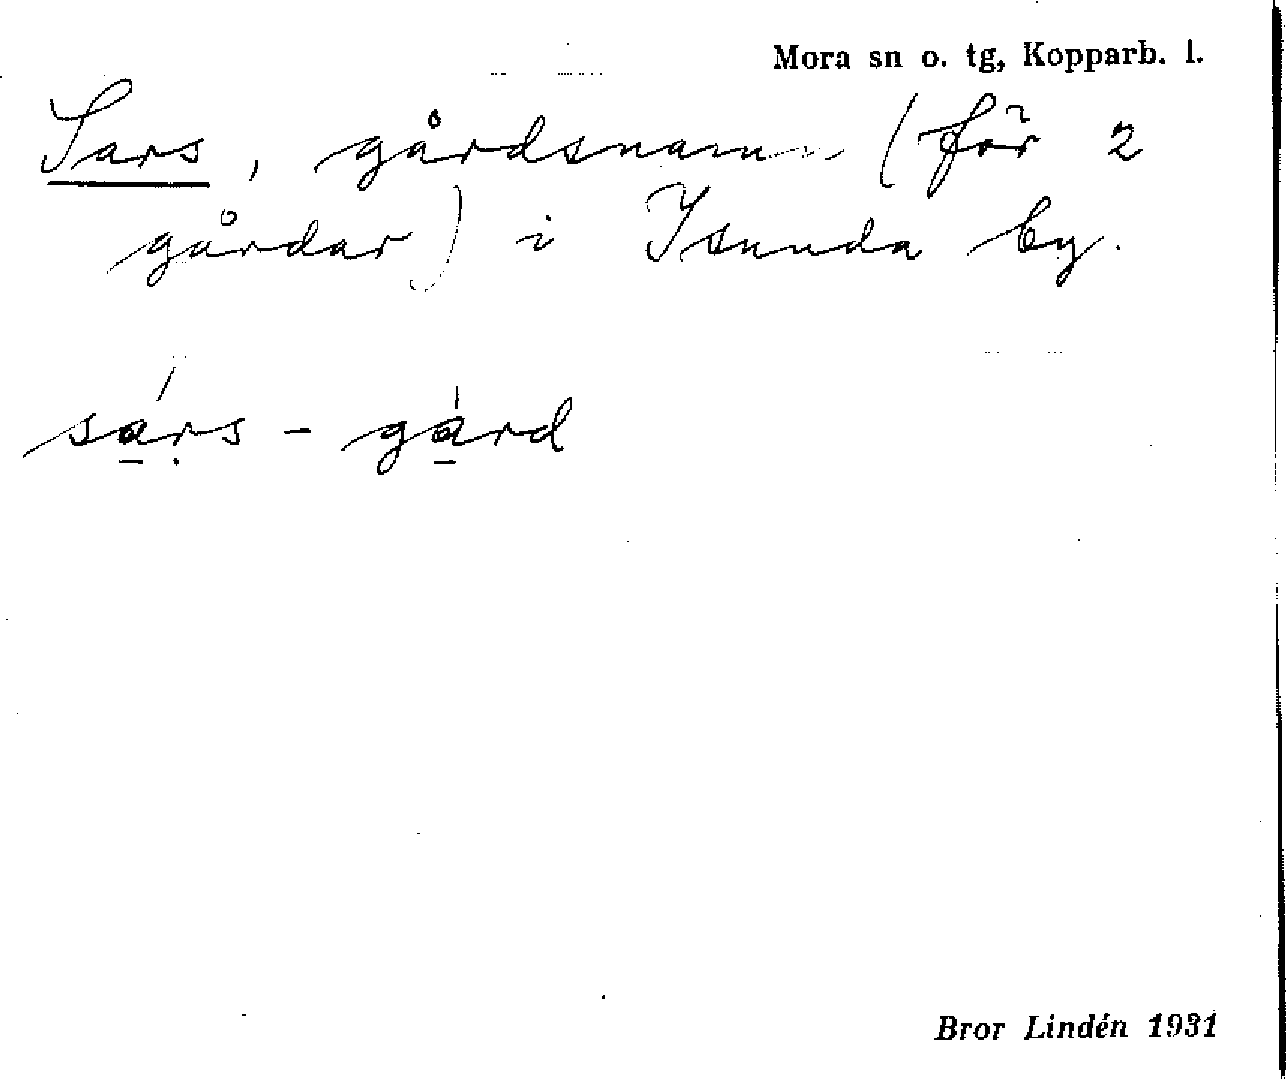 Mora sn o. tg, Kopparb. l.
Sars, gårdsnamn (för 2
gårdar) i Isunda by.
sá̱ṛs - gá̱rd
Bror Lindén 1931